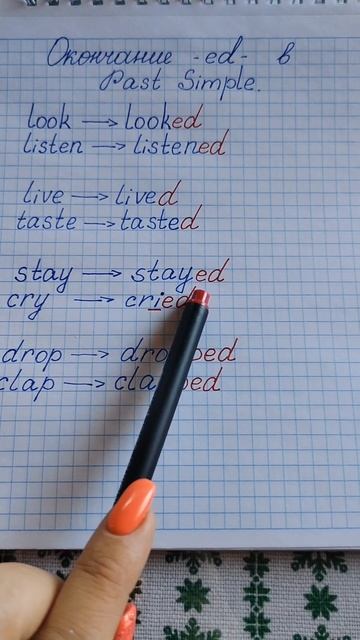 Окончание -ed- в
Past Simple.
look → looked
listen → listened
live → lived
taste → tasted
stay → stayed
cry → cried
drop →
clap →